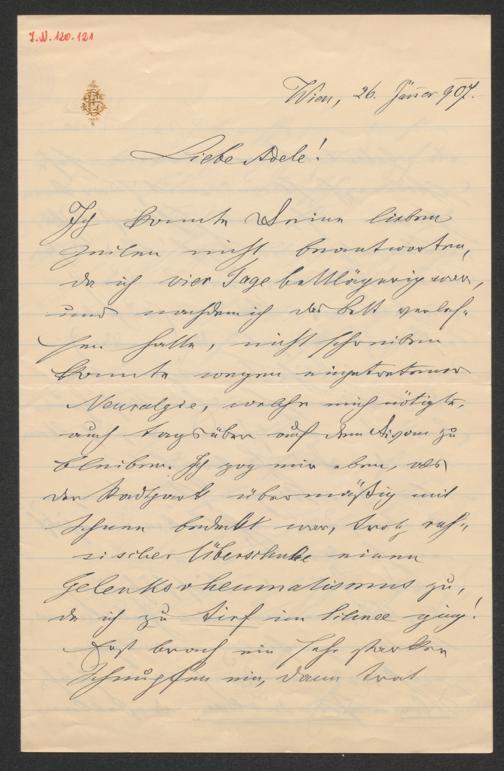 I.N. 120.121
Wien, 26. Jänner 907.
Liebe Adele!
Ich konnte Deine lieben
Zeilen nicht beantworten,
da ich vier Tage bettlägerig war,
und nachdem ich das Bett verlas-
sen hatte, nicht schreiben
konnte wegen eingetretener
Neuralgie, welche mich nötigte,
auch tagsüber auf dem Divan zu
bleiben. Ich zog mir eben, als
der Stadtpark übermäßig mit
Schnee bedeckt war, trotz rus-
sischer Überschuhe einen
Gelenksrheumatismus zu,
da ich zu tief im Schnee ging!
Erst brach ein sehr starker
Schnupfen ein, dann trat